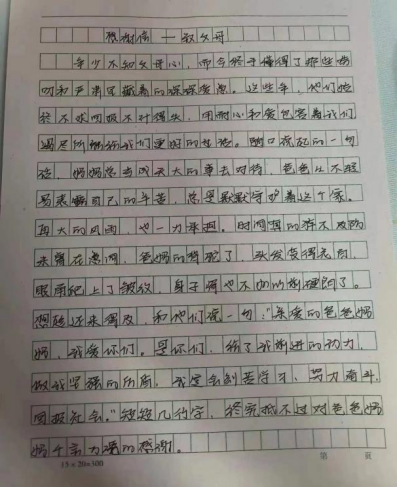 感谢信 — 致父母
年少不知父母心，而今终于懂得了那些唠
叨和严肃里藏着的深深爱意。这些年，他们始
终不求回报不计得失，用耐心和爱包容着我们
竭尽所能给我们更好的生活。随口说起的一句
话，妈妈总当成天大的事去对待，爸爸从不轻
易表露自己的辛苦，总是默默守护着这个家。
再大的风雨，也一力承担。时间真的有不及防
来得在悄间，爸妈的背驼了，头发变得花白，
眼角爬上了皱纹，身子骨也不如以前硬朗了。
想趁还来得及，和他们说一句："亲爱的爸爸妈
妈，我爱你们。是你们，给了我前进的动力，
做我坚强的后盾，我定会刻苦学习，努力奋斗，
回报社会。"短短几行字，终究抵不过对爸爸妈
妈千言万语的感谢。
15×20=300
第 页